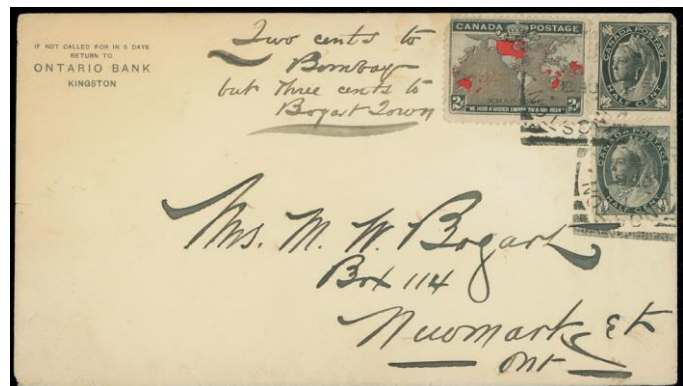 IF NOT CALLED FOR IN 5 DAYS
RETURN TO
ONTARIO BANK
KINGSTON
Two cents to
Bombay
but three cents to
Bogart Town
CANADA POSTAGE
XMAS
2¢
"WE HOLD A VASTER EMPIRE THAN HAS BEEN"
CANADA POSTAGE
HALF CENT
CANADA POSTAGE
HALF CENT
Mrs. M. W. Bogart
Box 114
Newmarket
Ont